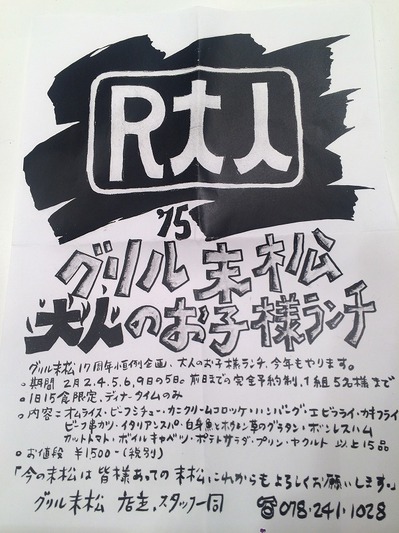 R大人
'15
グリル末松
大人のお子様ランチ
グリル末松17周年恒例企画、大人のお子様ランチ、今年もやります。
○期間 2月2.4.5.6.9日の5日。前日までの完全予約制、1組5名様まで
○1日15食限定、ディナータイムのみ
○内容:オムライス・ビーフシチュー・カニクリームコロッケ・ハンバーグ・エビフライ・カキフライ
ビーフ串カツ・イタリアンスパ・白身魚とホウレン草のグラタン・ボンレスハム
カットトマト・ボイルキャベツ・ポテトサラダ・プリン・ヤクルト 以上15品
○お値段 ¥1500-(税別)
「今の末松は皆様あっての末松、これからもよろしくお願いします。」
グリル末松 店主、スタッフ一同 ☎078.241.1028